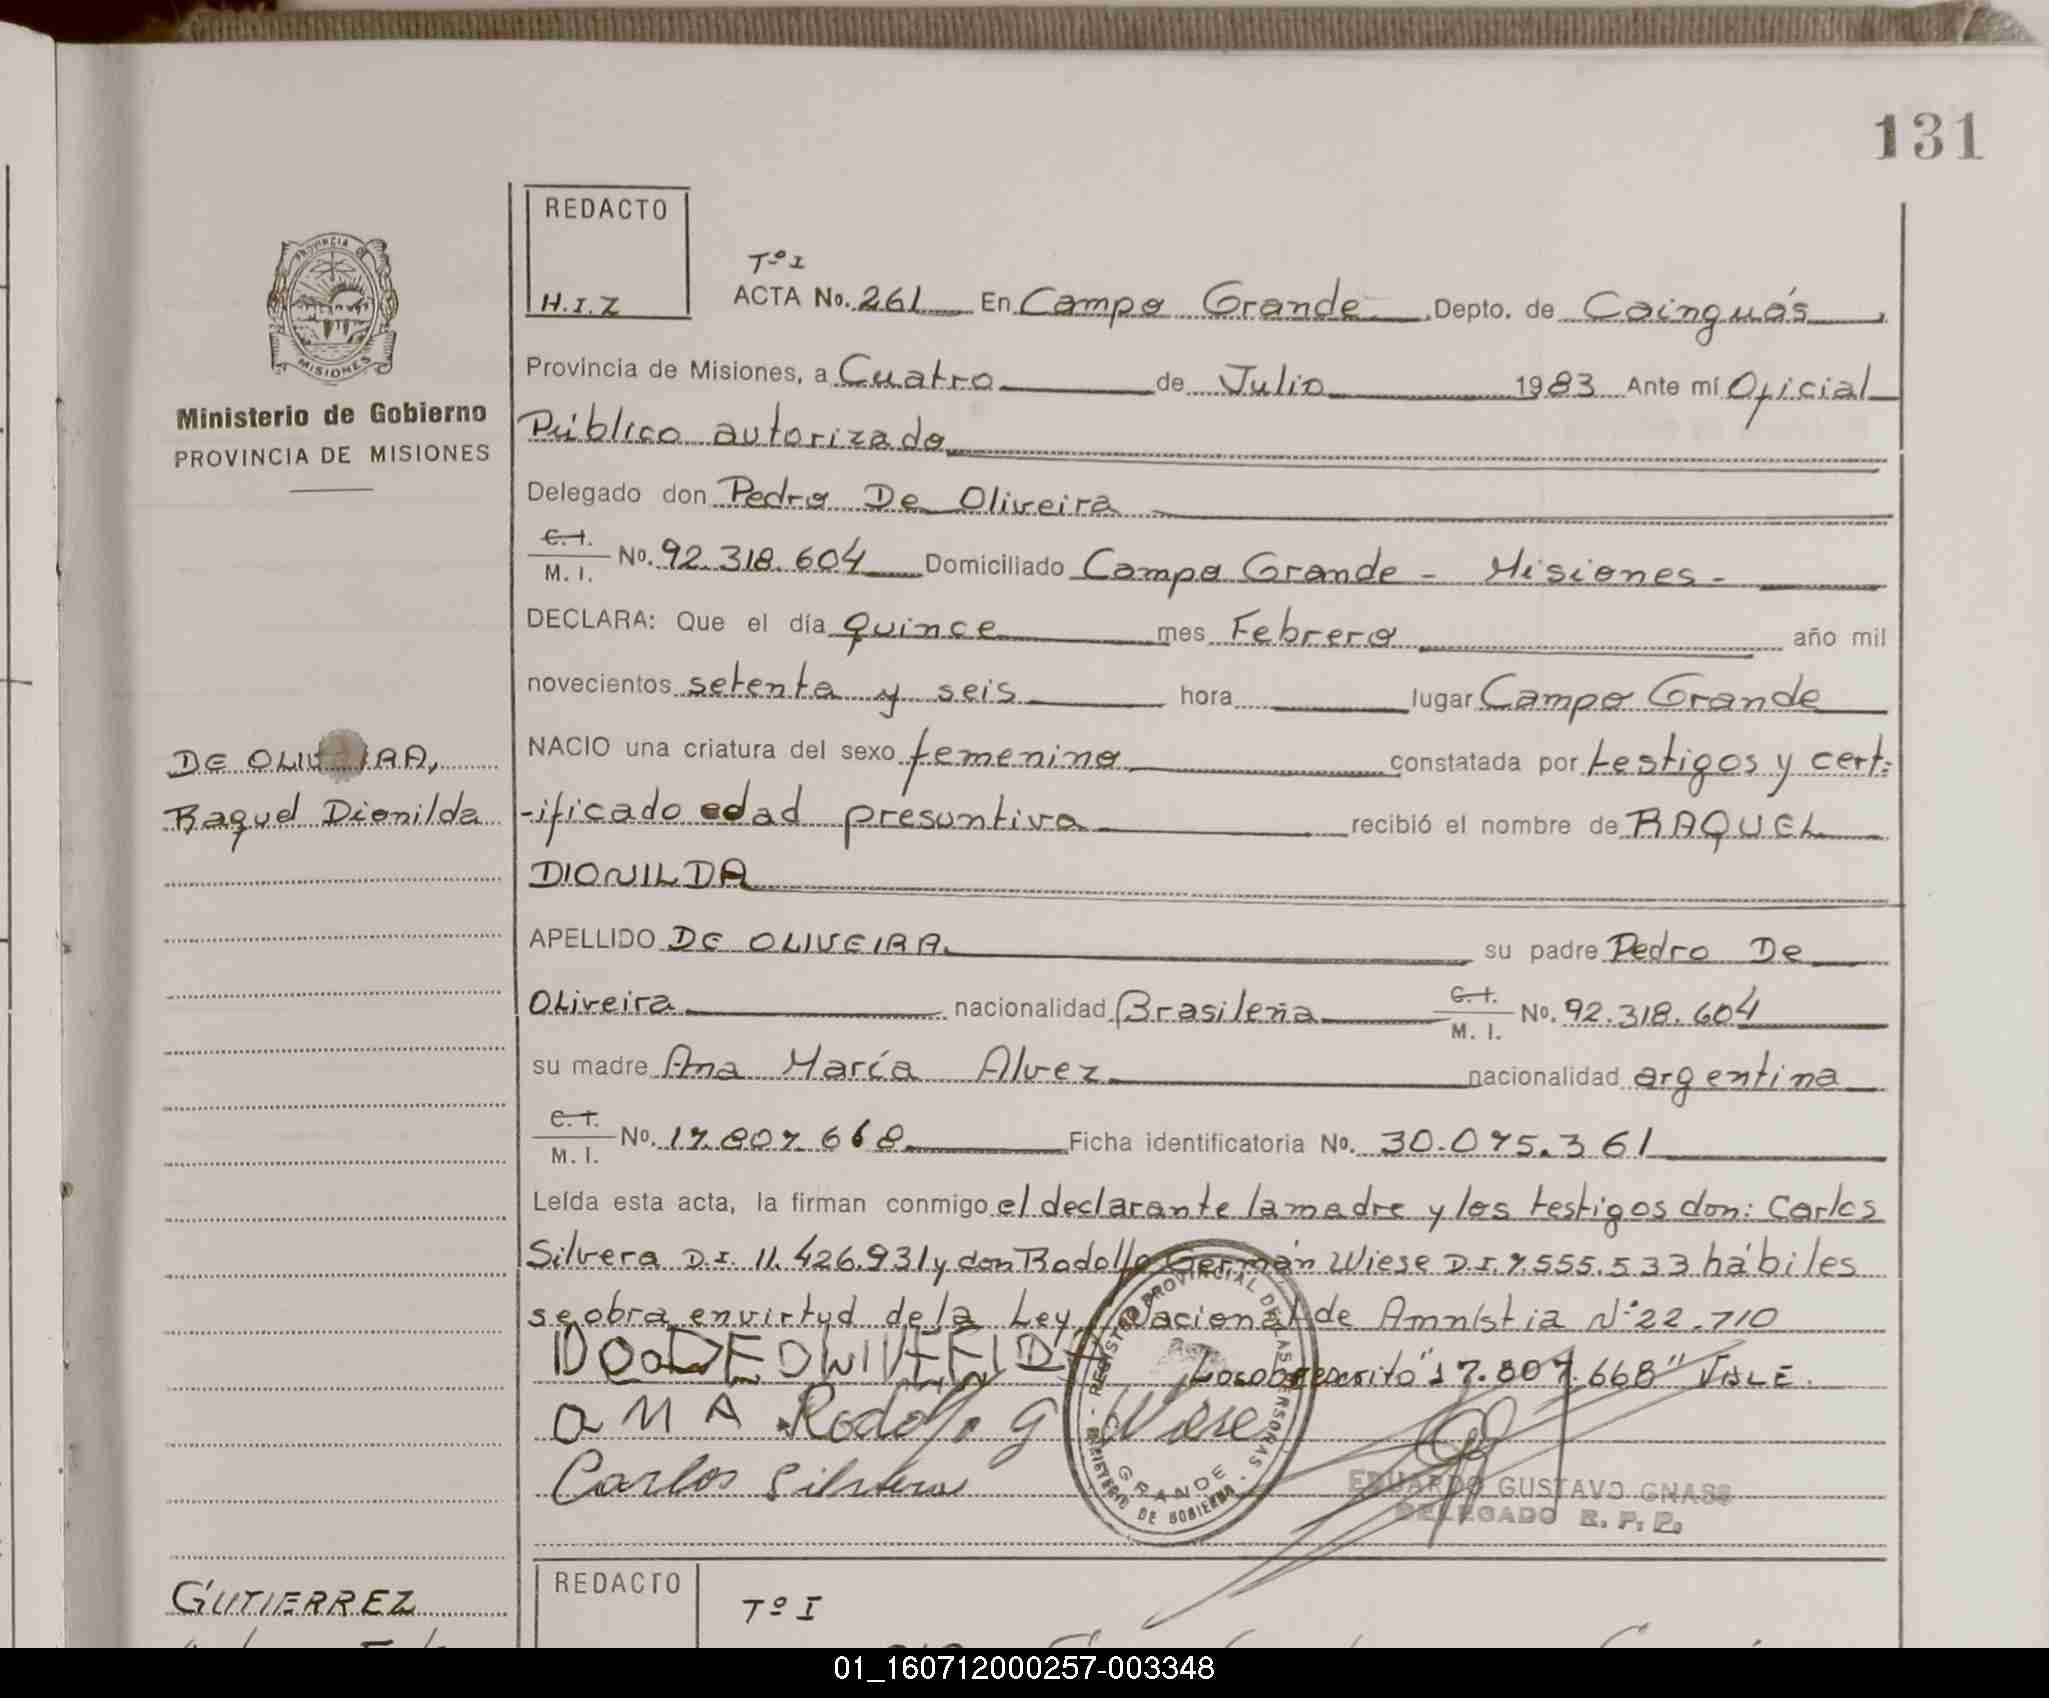 131
REDACTO
H.I.Z
Tº I
ACTA No. 261 En Campo Grande Depto. de Cainguás,
PROVINCIA DE
MISIONES
Ministerio de Gobierno
PROVINCIA DE MISIONES
Provincia de Misiones, a Cuatro de Julio 1983 Ante mí Oficial
Público autorizado
Delegado don Pedro De Oliveira
C.I.
M. I. No. 92.318.604 Domiciliado Campo Grande - Misiones-
DECLARA: Que el día quince mes Febrero año mil
novecientos setenta y seis hora lugar Campo Grande
DE OLIVEIRA,
Raquel Dionilda
NACIO una criatura del sexo femenino constatada por testigos y cert-
-ificado edad presuntiva recibió el nombre de RAQUEL
DIONILDA
APELLIDO DE OLIVEIRA su padre Pedro De
Oliveira nacionalidad Brasileña C.I. M. I. No. 92.318.604
su madre Ana María Alvez nacionalidad argentina
C.I.
M. I. No. 17.807.668 Ficha identificatoria No. 30.075.361
Leída esta acta, la firman conmigo el declarante la madre y los testigos don: Carlos
Silvera D.I. 11.426.931 y don Rodolfo Germán Wiese D.I. 7.555.533 hábiles
se obra en virtud de la Ley Nacional de Amnistia Nº 22.710
Lo sobreescrito "17.807.668" VALE.
a M A Rodolfo G Wiese
Carlos Silvera
REGISTRO PROVINCIAL DE LAS PERSONAS - MINISTERIO DE GOBIERNO -
GRANDE
EDUARDO GUSTAVO GNASS
DELEGADO R. P. P.
GUTIERREZ
REDACTO
Tº I
01_160712000257-003348